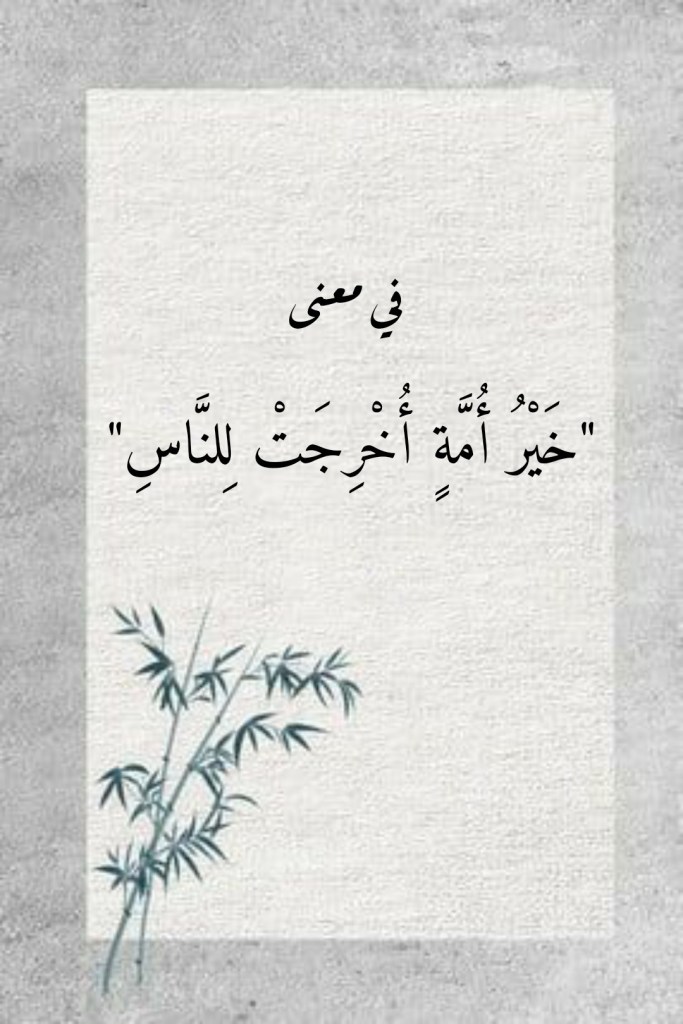 في معنى
"خَيْرُ أُمَّةٍ أُخْرِجَتْ لِلنَّاسِ"